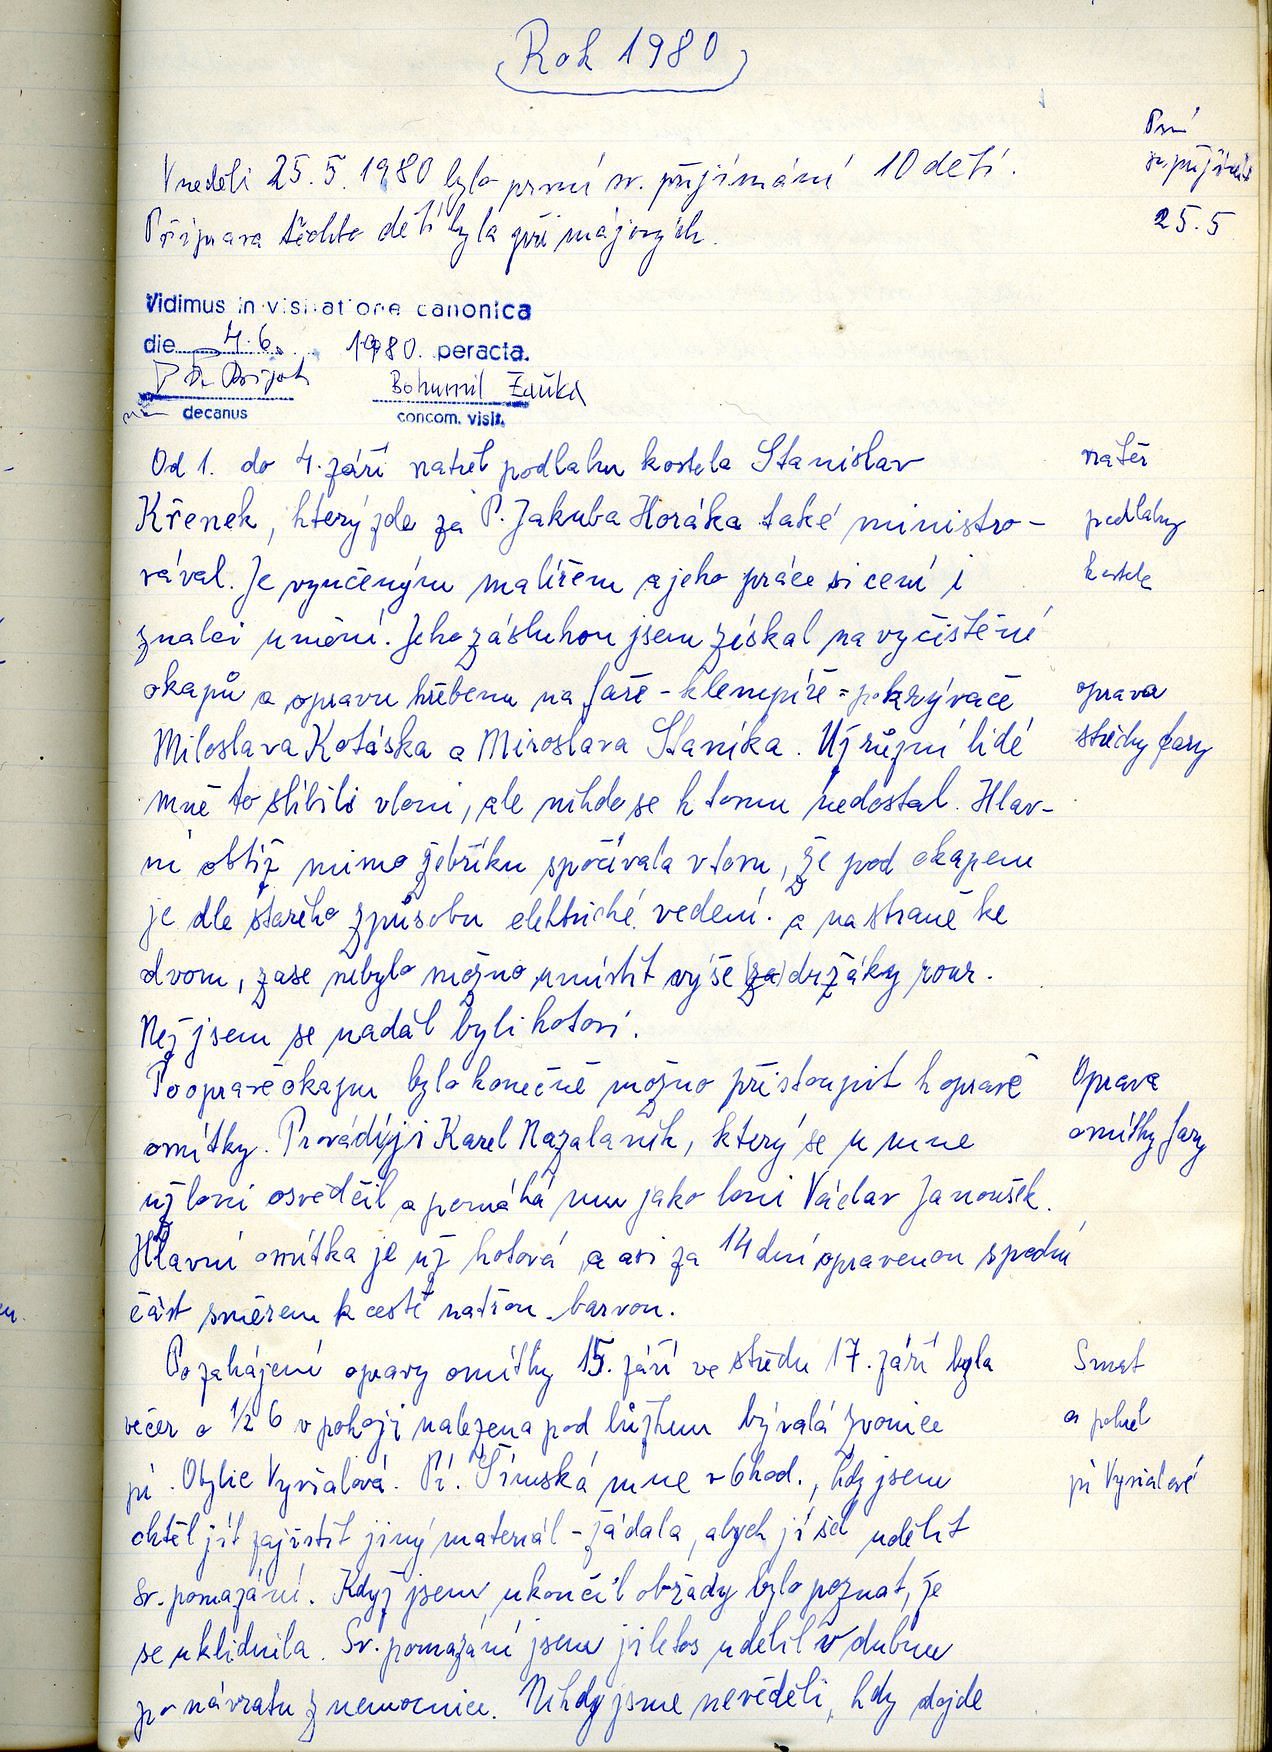 Rok 1980
První
sv. přijímání
V neděli 25.5. 1980 bylo první sv. přijímání 10 dětí.
25.5
Příprava těchto dětí byla při májových.
Vidimus in visitatione canonica
die 4.6. 1980. peracta.
Bohumil
decanus concom. visit.
Od 1. do 4. září natřel podlahu kostela Stanislav
nátěr
Křenek, který zde za P. Jakuba Horáka také ministro-
podlahy
vával. Je vyučeným malířem a jeho práce si cení i
kostela
znalci umění. Jeho zásluhou jsem získal na vyčistění
okapů a opravu hřebenu na faře - klempíře = pokrývače
oprava
Miloslava Kotáska a Miroslava Staníka. Už různí lidé
střechy fary
mně to slíbili vloni, ale nikdo se k tomu nedostal. Hlav-
ní obtíž mimo žebříku spočívala v tom, že pod okapem
je dle starého způsobu elektrické vedení. a na straně ke
dvoru, zase nebylo možno umístit výše (za) držáky rour.
Než jsem se nadál byli hotovi.
Po opravě okapu bylo konečně možno přistoupit k opravě
Oprava
omítky. Provádí ji Karel Nazalaník, který se u mne
omítky fary
už loni osvědčil a pomáhá mu jako loni Václav Janoušek.
Hlavní omítka je už hotová a asi za 14 dní opravenou spodní
část směrem k cestě natřou barvou.
Po zahájení opravy omítky 15. září ve středu 17. září byla
Smrt
večer o 1/2 6 v pokoji nalezena pod lůžkem bývalá zvonice
a pohřeb
pí. Otylie Vyvialová. Pí. Šimská mne v 6 hod., kdy jsem
pí Vyvialové
chtěl jít zajistit jiný materiál - žádala, abych jí šel udělit
sv. pomazání. Když jsem ukončil obřady bylo poznat, že
se uklidnila. Sv. pomazání jsem jí letos udělil v dubnu
po návratu z nemocnice. Nikdy jsme nevěděli, kdy dojde